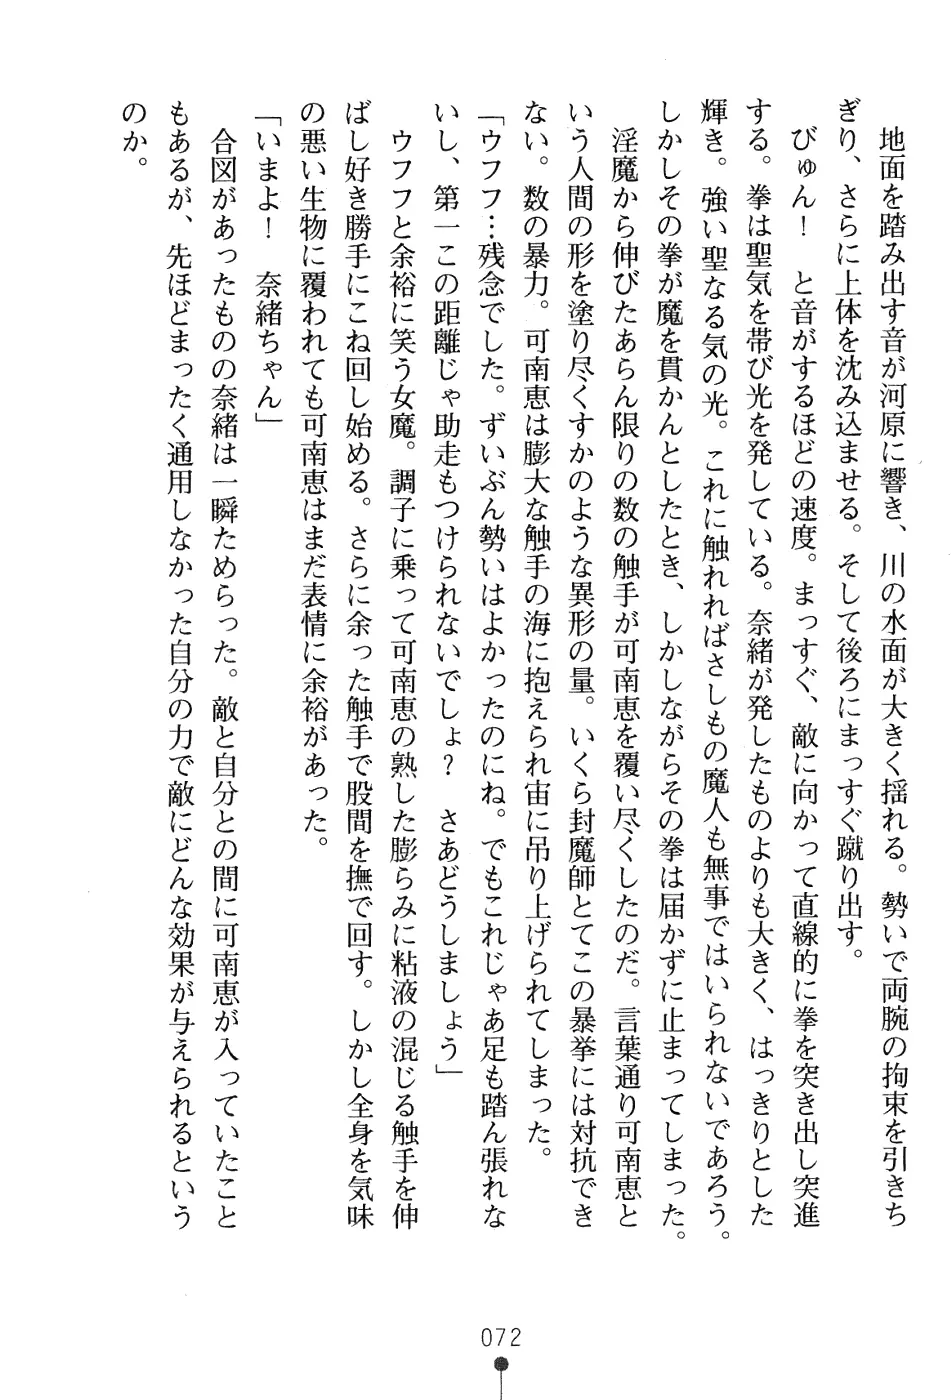 地面を踏み出す音が河原に響き、川の水面が大きく揺れる。勢いで両腕の拘束を引きち
ぎり、さらに上体を沈み込ませる。そして後ろにまっすぐ蹴り出す。
びゅん！　と音がするほどの速度。まっすぐ、敵に向かって直線的に拳を突き出し突進
する。拳は聖気を帯び光を発している。奈緒が発したものよりも大きく、はっきりとした
輝き。強い聖なる気の光。これに触れればさしもの魔人も無事ではいられないであろう。
しかしその拳が魔を貫かんとしたとき、しかしながらその拳は届かずに止まってしまった。
淫魔から伸びたあらん限りの数の触手が可南恵を覆い尽くしたのだ。言葉通り可南恵と
いう人間の形を塗り尽くすかのような異形の量。いくら封魔師とてこの暴挙には対抗でき
ない。数の暴力。可南恵は膨大な触手の海に抱えられ宙に吊り上げられてしまった。
「ウフフ…残念でした。ずいぶん勢いはよかったのにね。でもこれじゃあ足も踏ん張れな
いし、第一この距離じゃ助走もつけられないでしょ？　さあどうしましょう」
ウフフと余裕に笑う女魔。調子に乗って可南恵の熟した膨らみに粘液の混じる触手を伸
ばし好き勝手にこね回し始める。さらに余った触手で股間を撫で回す。しかし全身を気味
の悪い生物に覆われても可南恵はまだ表情に余裕があった。
「いまよ！　奈緒ちゃん」
合図があったものの奈緒は一瞬ためらった。敵と自分との間に可南恵が入っていたこと
もあるが、先ほどまったく通用しなかった自分の力で敵にどんな効果が与えられるという
のか。
072